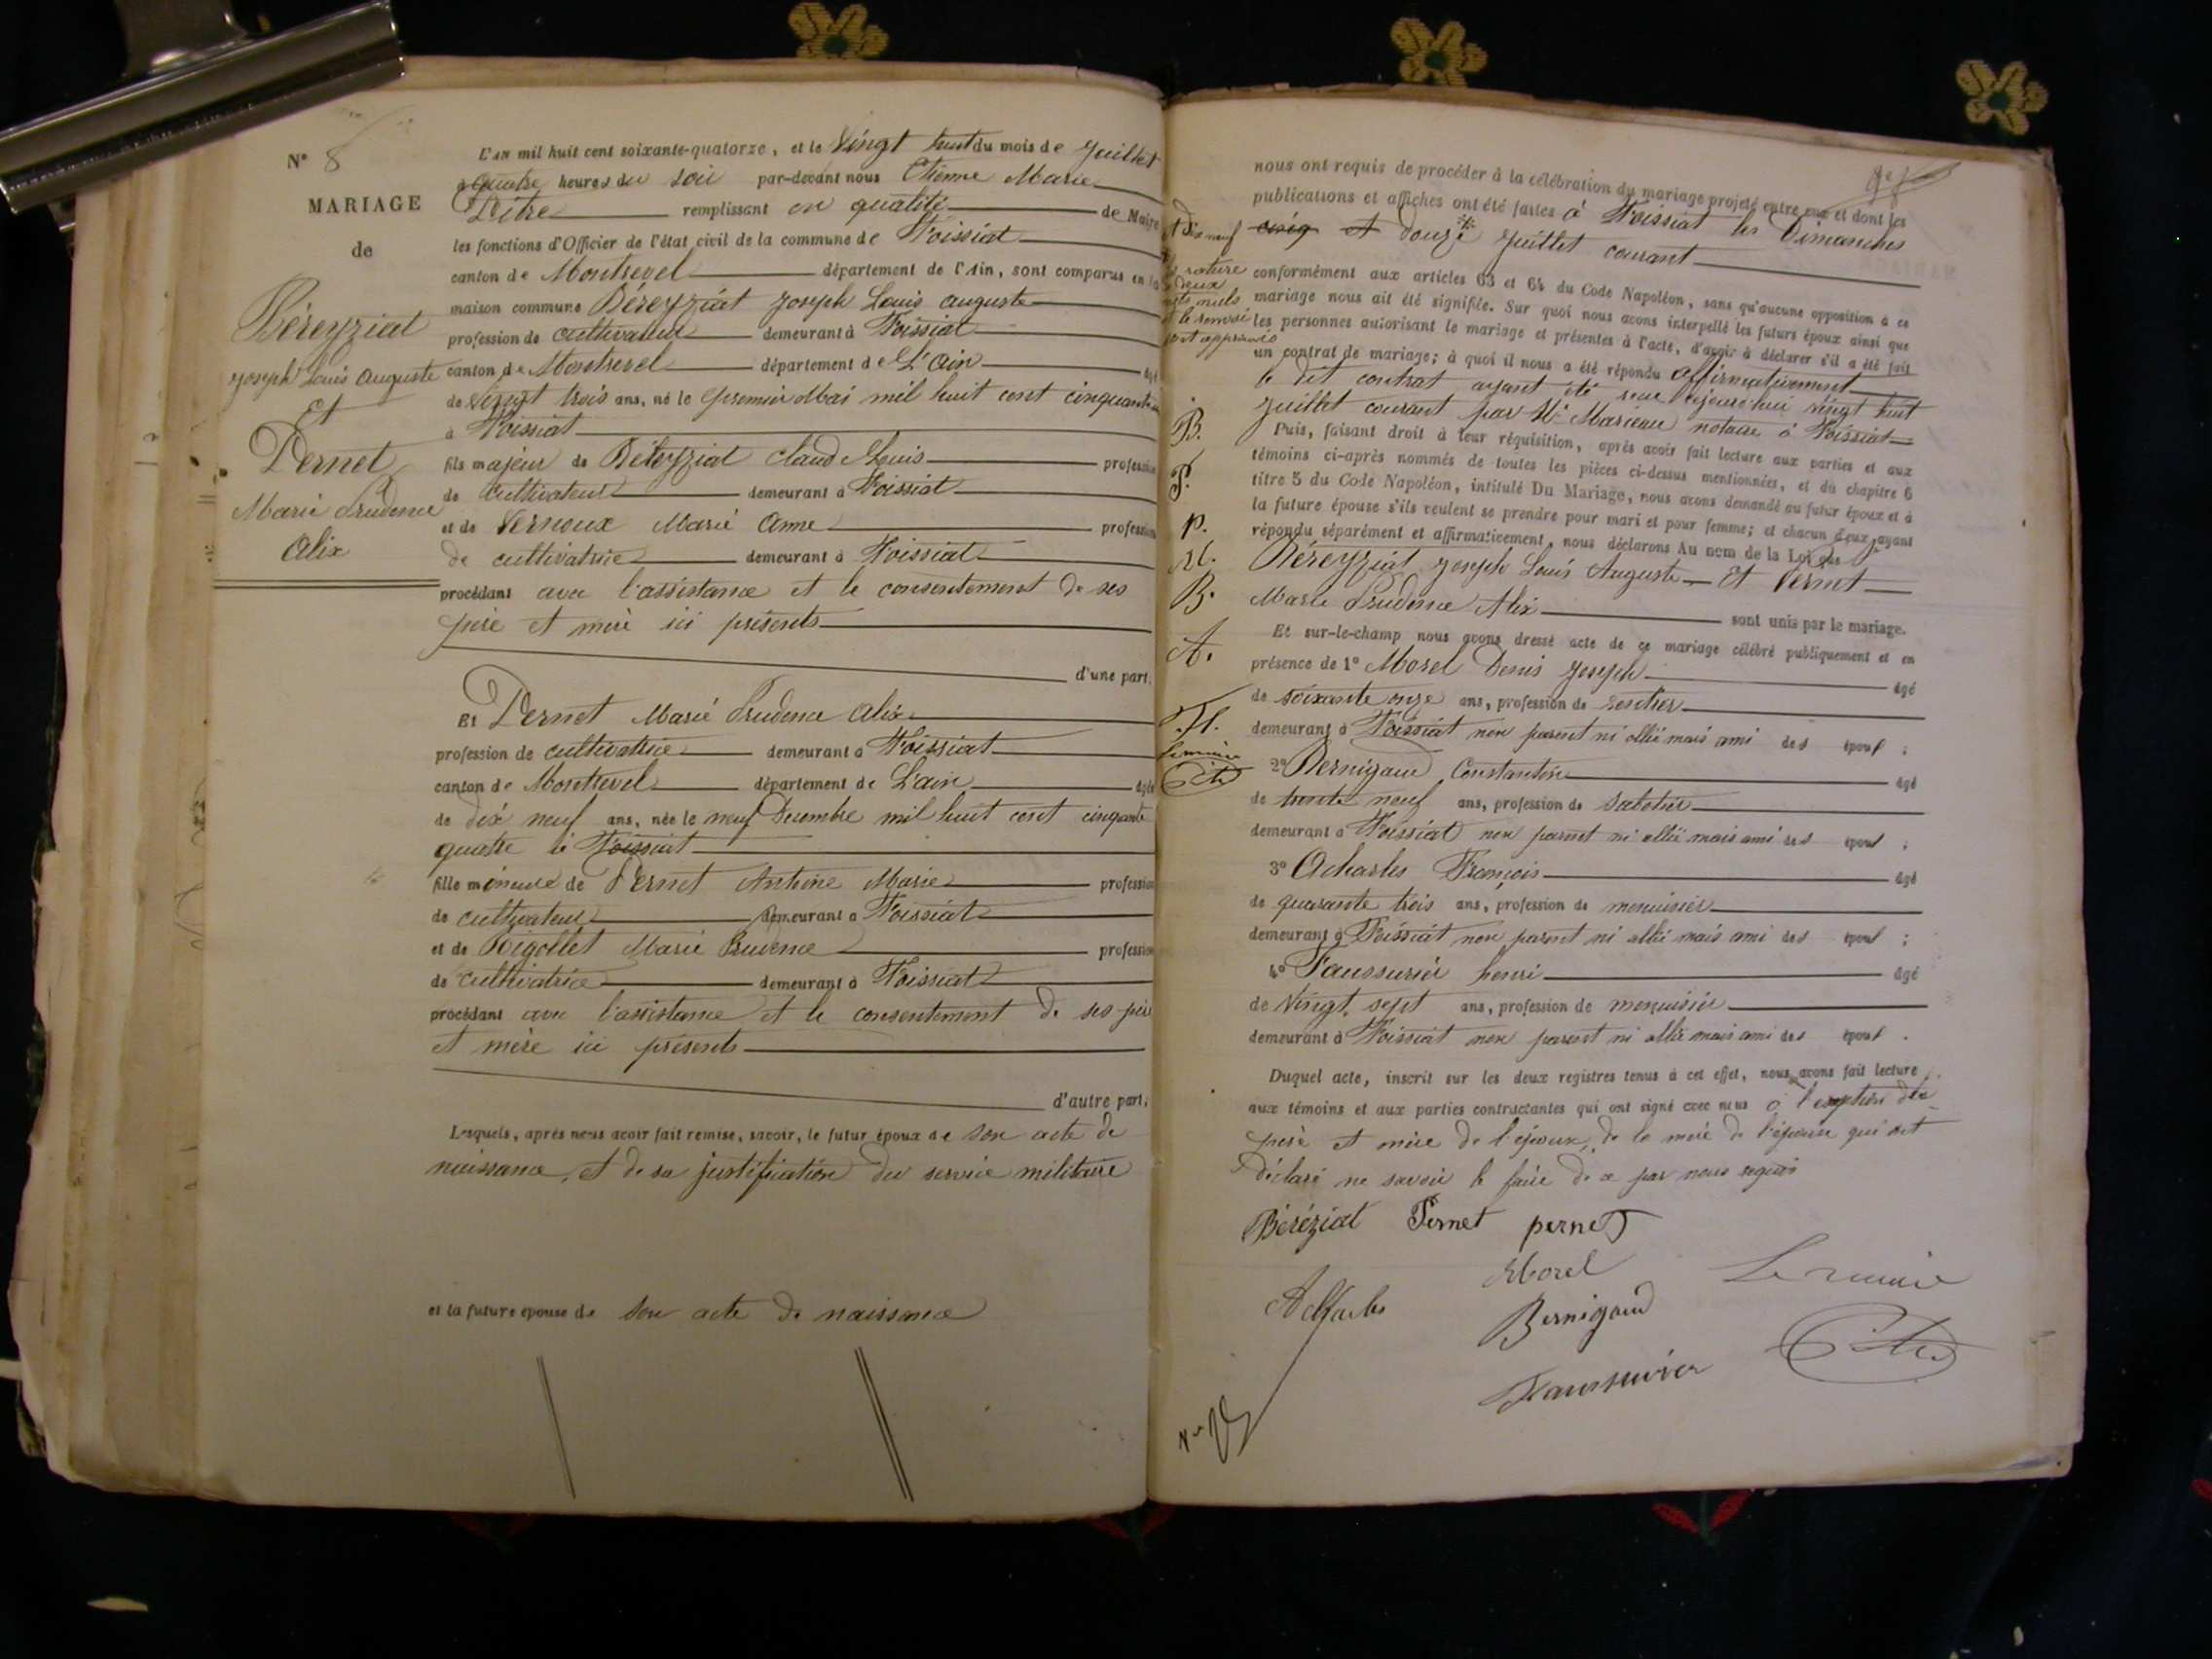 N° 8
MARIAGE
de
Béreyziat
Joseph Louis Auguste
Et
Pernet
Marie Prudence
Alix
L'AN mil huit cent soixante-quatorze, et le Vingt huit du mois de Juillet
à quatre heures du soir par-devant nous Etienne Marie
Pitre remplissant en qualité de Maire
les fonctions d'Officier de l'état civil de la commune de Foissiat
canton de Montrevel département de l'Ain, sont comparus en la
maison commune Béreyziat Joseph Louis Auguste
profession de cultivateur demeurant à Foissiat
canton de Montrevel département de L'ain âgé
de Vingt trois ans, né le premier Mai mil huit cent cinquante
à Foissiat
fils majeur de Béreyziat Claude Louis profession
de cultivateur demeurant à Foissiat
et de Vernoux Marie Anne profession
de cultivatrice demeurant à Foissiat
procédant avec l'assistance et le consentement de ses
père et mère ici présents
d'une part;
Et Pernet Marie Prudence Alix
profession de cultivatrice demeurant à Foissiat
canton de Montrevel département de L'ain âgée
de dix neuf ans, née le neuf Decembre mil huit cent cinquante
quatre à Foissiat
fille mineure de Pernet Antoine Marie profession
de cultivateur demeurant à Foissiat
et de Rigollet Marie Prudence profession
de cultivatrice demeurant à Foissiat
procédant avec l'assistance et le consentement de ses père
et mère ici présents
d'autre part;
Lesquels, après nous avoir fait remise, savoir, le futur époux de son acte de
naissance, et de sa justification du service militaire
et la future épouse de son acte de naissance
nous ont requis de procéder à la célébration du mariage projeté entre eux et dont les
publications et affiches ont été faites à Foissiat les Dimanches
cinq et douze juillet courant
et dix neuf
la rature
de deux
mots nuls
et le renvoi
sont approuvés
conformément aux articles 63 et 64 du Code Napoléon, sans qu'aucune opposition à ce
mariage nous ait été signifiée. Sur quoi nous avons interpellé les futurs époux ainsi que
les personnes autorisant le mariage et présentes à l'acte, d'avoir à déclarer s'il a été fait
un contrat de mariage; à quoi il nous a été répondu affirmativement
le dit contrat ayant été reçu aujourd'hui vingt huit
juillet courant par Me Marieau notaire à Foissiat
Puis, faisant droit à leur réquisition, après avoir fait lecture aux parties et aux
témoins ci-après nommés de toutes les pièces ci-dessus mentionnées, et du chapitre 6
titre 5 du Code Napoléon, intitulé Du Mariage, nous avons demandé au futur époux et à
la future épouse s'ils veulent se prendre pour mari et pour femme; et chacun d'eux ayant
répondu séparément et affirmativement, nous déclarons Au nom de la Loi que
Béreyziat Joseph Louis Auguste Et Pernet
Marie Prudence Alix sont unis par le mariage.
B.
P.
p.
M.
B.
A.
F. H.
Lemaire
Pitre
Et sur-le-champ nous avons dressé acte de ce mariage célébré publiquement et en
présence de 1° Morel Denis Joseph âgé
de soixante onze ans, profession de rentier
demeurant à Foissiat non parent ni allié mais ami des époux ;
2° Bernigaud Constantin âgé
de trente neuf ans, profession de sabotier
demeurant à Foissiat non parent ni allié mais ami des époux ;
3° Acharles François âgé
de quarante trois ans, profession de menuisier
demeurant à Foissiat non parent ni allié mais ami des époux ;
4° Faussurier henri âgé
de Vingt sept ans, profession de menuisier
demeurant à Foissiat non parent ni allié mais ami des époux .
Duquel acte, inscrit sur les deux registres tenus à cet effet, nous avons fait lecture
aux témoins et aux parties contractantes qui ont signé avec nous à l'exception des
père et mère de l'époux, de la mère de l'épouse qui ont
déclaré ne savoir le faire de ce par nous requis
Béréziat Pernet pernet
Morel Le maire
Acharles
Bernigaud
Pitre
Faussurier